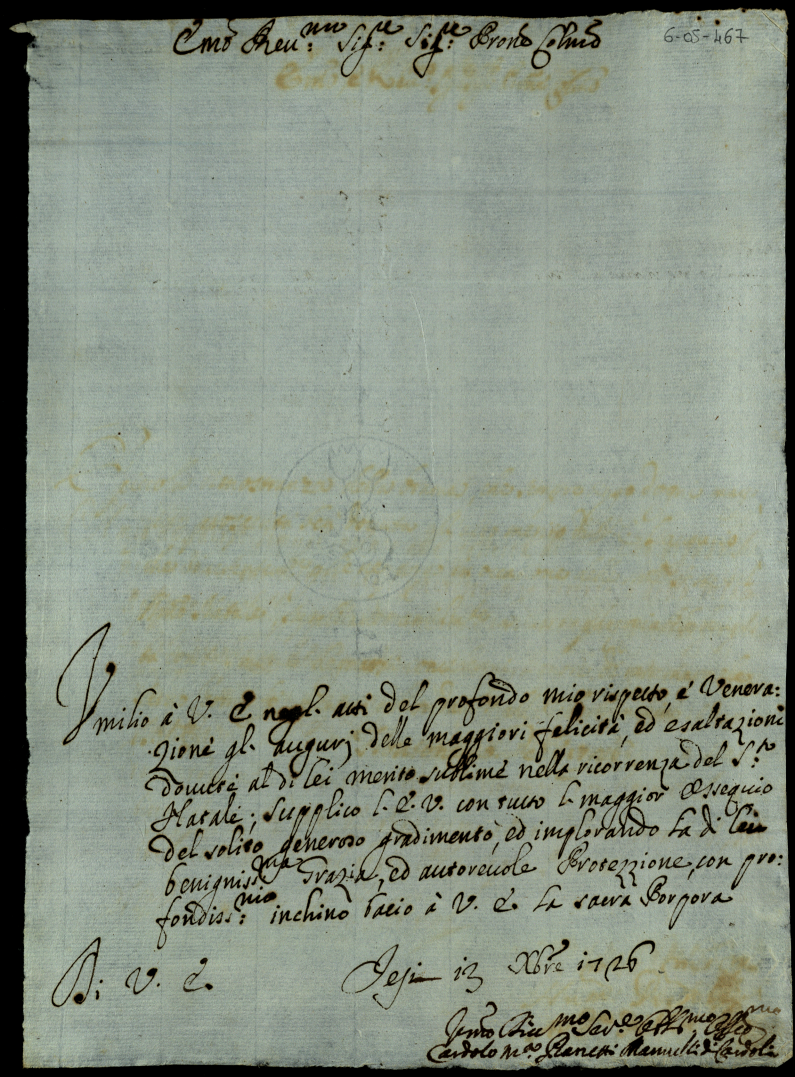 Emo Reu:mo Sig:re Sig:re Prone Colmo
6-05-467
Vmilio à V. E negl. atti del profondo mio rispetto, e Venera:
zione gl. augurj delle maggiori felicità, ed esaltazioni
douute al di lei merito sublime nella ricorrenza del S:to
Natale; supplico l. E. V. con tutto l. maggior Ossequio
del solito generoso gradimento, ed implorando la di lei
benigniss:ma Grazia, ed autoreuole Protezzione, con pro:
fondiss:mo inchino bacio à V. E. la sacra Porpora
Di V. E.
Jesi 13 Xbre 1726
Carlo M.a Pianetti Mannelli